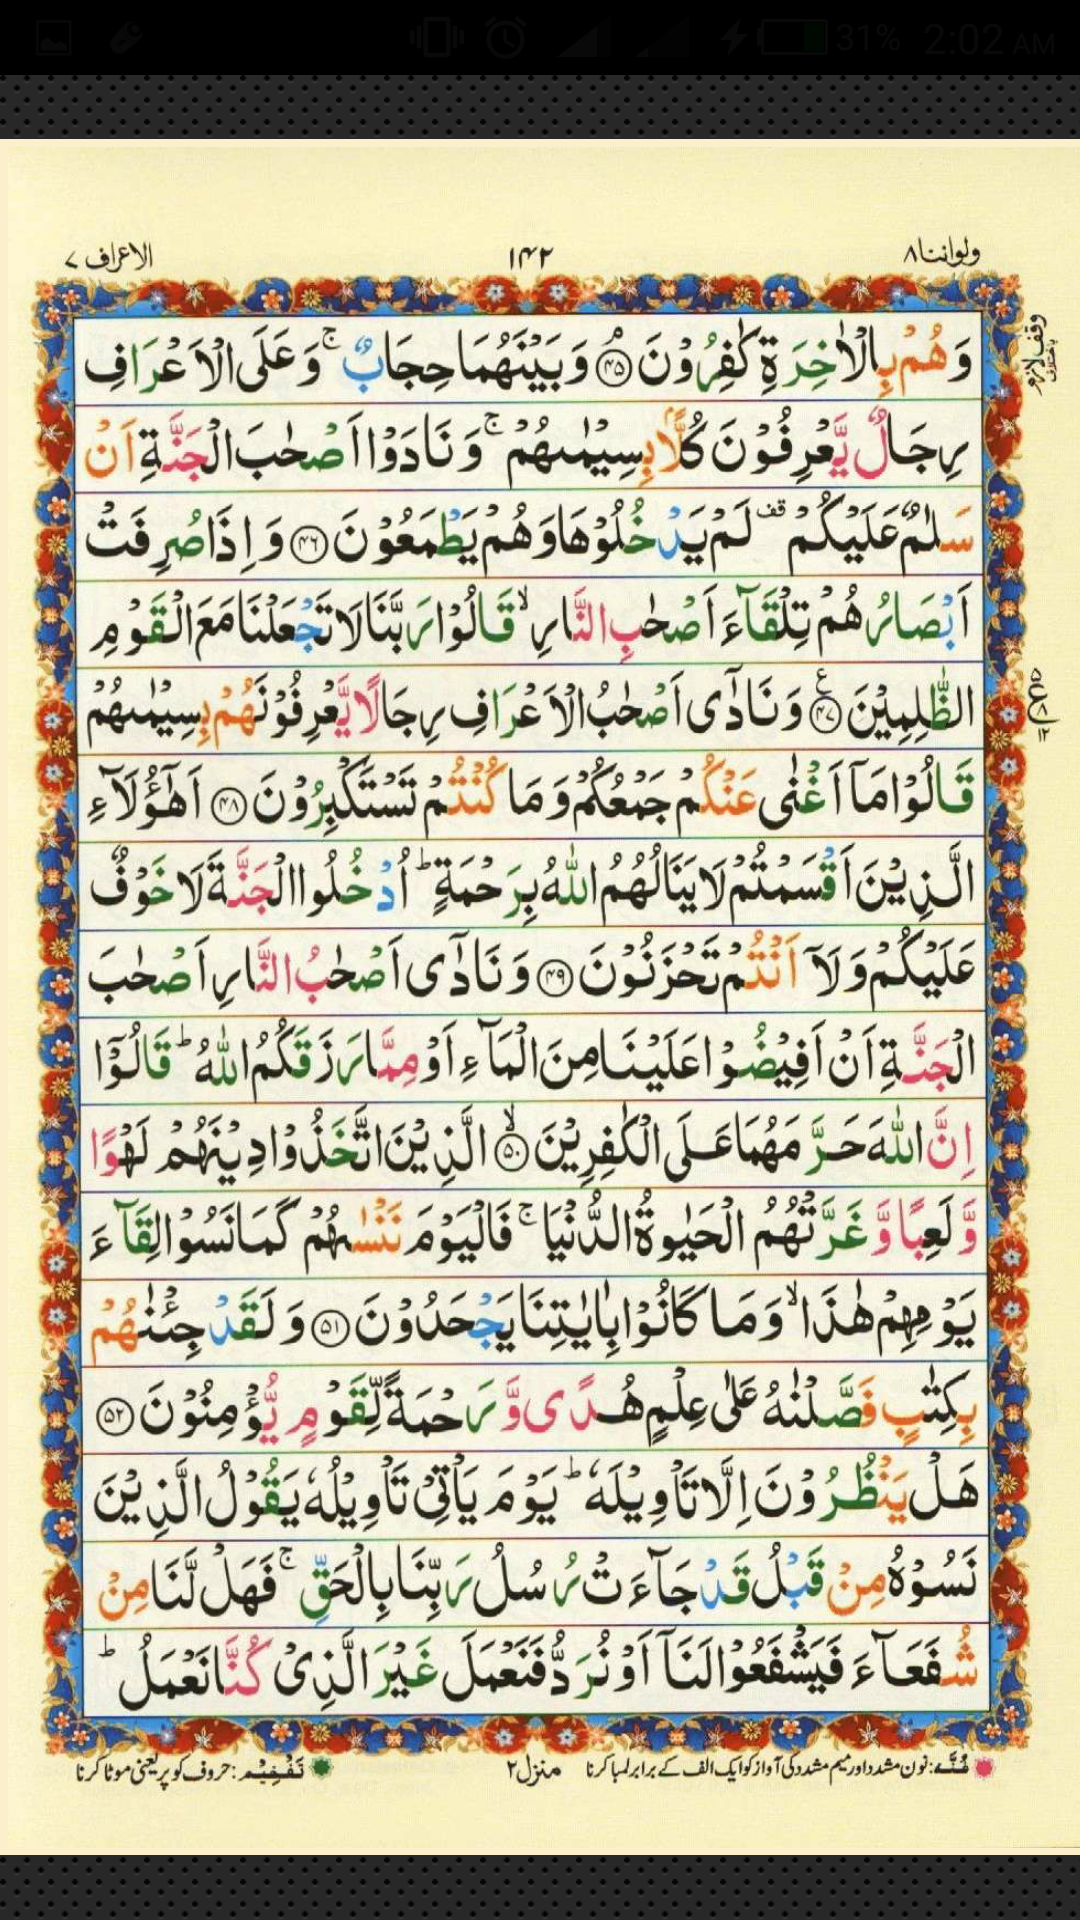 31% 2:02 AM
ولواننا ٨ ١٤٢ الاعراف ٧
وقف لازم
وَهُمْ بِالْاٰخِرَةِ كٰفِرُوْنَ ۘ﴿۴۵﴾ وَبَيْنَهُمَا حِجَابٌ ۚ وَعَلَى الْاَعْرَافِ
رِجَالٌ يَّعْرِفُوْنَ كُلًّاۢ بِسِيْمٰىهُمْ ۚ وَنَادَوْا اَصْحٰبَ الْجَنَّةِ اَنْ
سَلٰمٌ عَلَيْكُمْ ۟قف لَمْ يَدْخُلُوْهَا وَهُمْ يَطْمَعُوْنَ ﴿۴۶﴾ وَاِذَا صُرِفَتْ
اَبْصَارُهُمْ تِلْقَآءَ اَصْحٰبِ النَّارِ ۙ قَالُوْا رَبَّنَا لَا تَجْعَلْنَا مَعَ الْقَوْمِ
الظّٰلِمِيْنَ ﴿۴۷﴾ ع وَنَادٰٓى اَصْحٰبُ الْاَعْرَافِ رِجَالًا يَّعْرِفُوْنَهُمْ بِسِيْمٰىهُمْ
۵ ع ٨ ١٢
قَالُوْا مَآ اَغْنٰى عَنْكُمْ جَمْعُكُمْ وَمَا كُنْتُمْ تَسْتَكْبِرُوْنَ ﴿۴۸﴾ اَهٰٓؤُلَآءِ
الَّذِيْنَ اَقْسَمْتُمْ لَا يَنَالُهُمُ اللّٰهُ بِرَحْمَةٍ ؕ اُدْخُلُوا الْجَنَّةَ لَا خَوْفٌ
عَلَيْكُمْ وَلَآ اَنْتُمْ تَحْزَنُوْنَ ﴿۴۹﴾ وَنَادٰٓى اَصْحٰبُ النَّارِ اَصْحٰبَ
الْجَنَّةِ اَنْ اَفِيْضُوْا عَلَيْنَا مِنَ الْمَآءِ اَوْ مِمَّا رَزَقَكُمُ اللّٰهُ ؕ قَالُوْٓا
اِنَّ اللّٰهَ حَرَّمَهُمَا عَلَى الْكٰفِرِيْنَ ۙ﴿۵۰﴾ الَّذِيْنَ اتَّخَذُوْا دِيْنَهُمْ لَهْوًا
وَّلَعِبًا وَّغَرَّتْهُمُ الْحَيٰوةُ الدُّنْيَا ۚ فَالْيَوْمَ نَنْسٰىهُمْ كَمَا نَسُوْا لِقَآءَ
يَوْمِهِمْ هٰذَا ۙ وَمَا كَانُوْا بِاٰيٰتِنَا يَجْحَدُوْنَ ﴿۵۱﴾ وَلَقَدْ جِئْنٰهُمْ
بِكِتٰبٍ فَصَّلْنٰهُ عَلٰى عِلْمٍ هُدًى وَّرَحْمَةً لِّقَوْمٍ يُّؤْمِنُوْنَ ﴿۵۲﴾
هَلْ يَنْظُرُوْنَ اِلَّا تَاْوِيْلَهٗ ؕ يَوْمَ يَاْتِيْ تَاْوِيْلُهٗ يَقُوْلُ الَّذِيْنَ
نَسُوْهُ مِنْ قَبْلُ قَدْ جَآءَتْ رُسُلُ رَبِّنَا بِالْحَقِّ ۚ فَهَلْ لَّنَا مِنْ
شُفَعَآءَ فَيَشْفَعُوْا لَنَآ اَوْ نُرَدُّ فَنَعْمَلَ غَيْرَ الَّذِيْ كُنَّا نَعْمَلُ ؕ
غُنَّه: نون مشدد اور میم مشدد کی آواز کو ایک الف کے برابر لمبا کرنا منزل ٢ تَفْخِيْم: حروف کو پُر یعنی موٹا کرنا